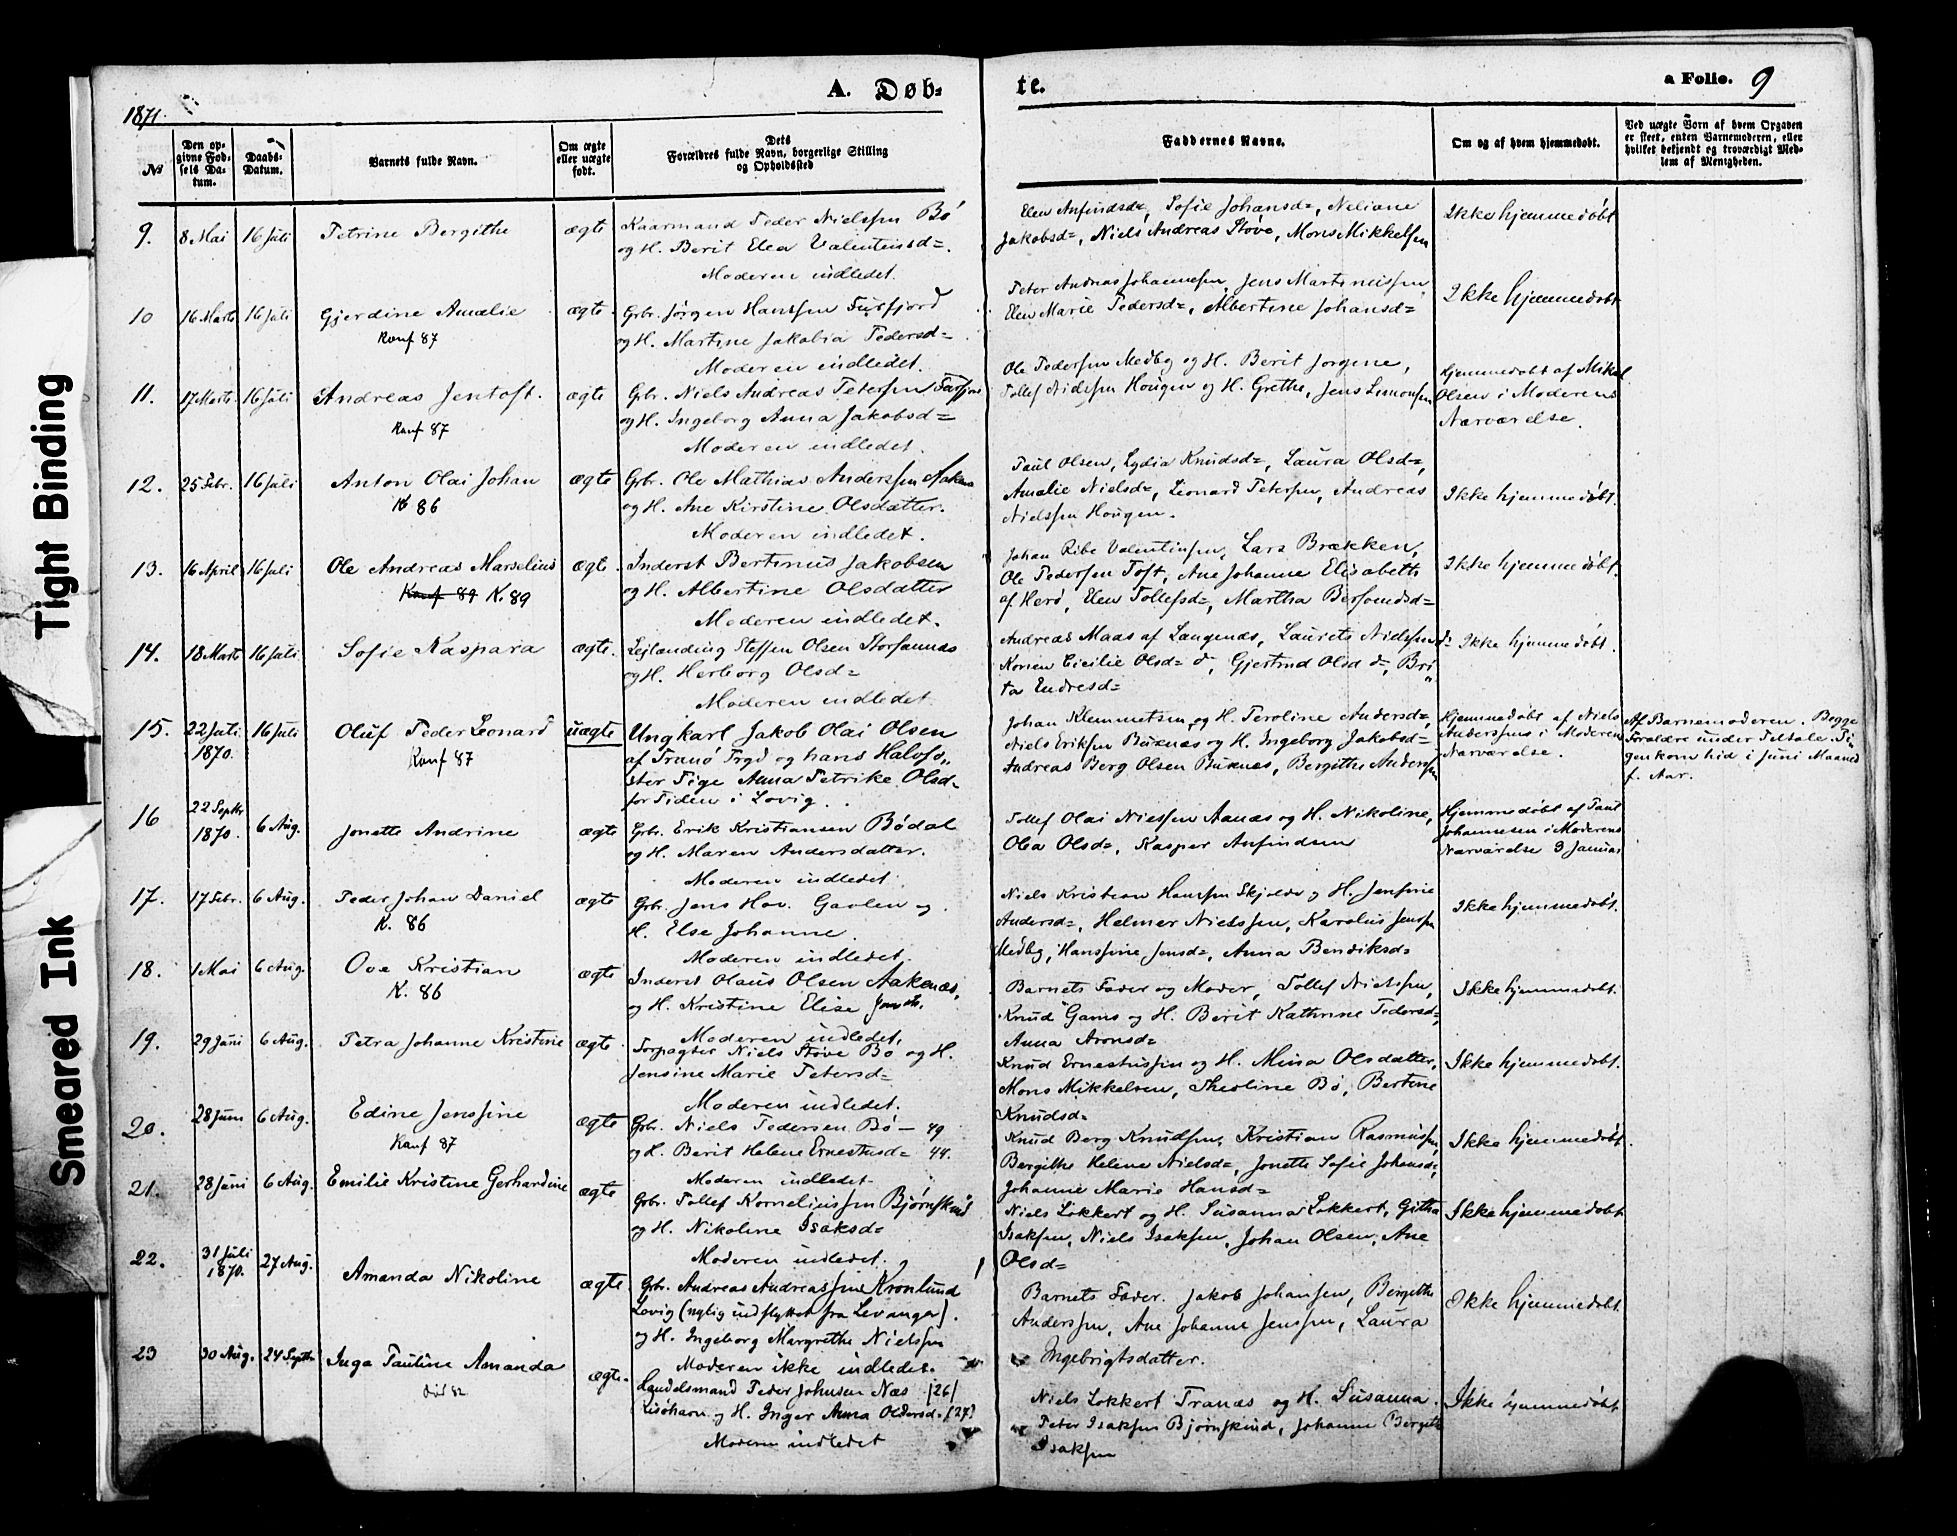 Tight Binding
Smeared Ink
A. Døb-
te.
a Folio. 9
1871.
№
Den op-
givne Fød-
sels Da-
tum.
Daabs-
Datum.
Barnets fulde Navn.
Om ægte
eller uægte
født.
Dets
Forældres fulde Navn, borgerlige Stilling
og Opholdssted
Faddernes Navne.
Om og af hvem hjemmedøbt.
Ved uægte Børn af hvem Opgaven
er skeet, enten Barnemoderen, eller
hvilket bekjendt og troværdigt Med-
lem af Menigheden.
9. 8 Mai 16 Juli Petrine Bergithe ægte
Kaarmand Peder Nielssen Bø
og H. Berit Elea Valentinsd=.
Moderen indledet.
Elen Anfindsd=, Sofie Johansd=, Neliane
Jakobsd=, Niels Andreas Støve, Mons Mikkelsen
Ikke hjemmedøbt
10 16 Marts 16 Juli Gjerdine Amalie ægte
Konf 87
Grbr. Jørgen Hanssen Fusfjord
og H. Martine Jakobia Pedersd=
Moderen indledet.
Peter Andreas Johannesen, Jens Martinussen
Elen Marie Pedersd=, Albertine Johansd=
Ikke hjemmedøbt
11. 17 Marts 16 Juli Andreas Jentoft. ægte
Konf 87
Grbr. Niels Andreas Petersen
og H. Ingeborg Anna Jakobsd=
Moderen indledet.
Ole Pedersen Medby og H. Berit Jorgine,
Tollef Nielssen Hougen og H. Grethe, Jens Simonsen
Hjemmedøbt af Mikal
Olsen i Moderens
Nærværelse.
12. 25 Febr. 16 Juli Anton Olai Johan ægte
K 86
Grbr. Ole Mathias Anderssen
og H. Ane Kirstine Olsdatter.
Moderen indledet.
Paul Olsen, Lydia Knudsd=, Laura Olsd=,
Amalie Nielsd=, Leonard Petersen, Andreas
Nielssen Hougen.
Ikke hjemmedøbt.
13. 16 April 16 Juli Ole Andreas Marselius ægte.
Konf 89 K. 89
Inderst Bertinus Jakobsen
og H. Albertine Olsdatter
Moderen indledet.
Johan Ribe Valentinsen, Lars Brækken,
Ole Pedersen Toft, Ane Johanne Elisabeth
af Herø, Elen Tollefsd=, Martha Bersvendsd=
Ikke hjemmedøbt.
14. 18 Marts 16 Juli Sofie Kaspara ægte.
Lejlænding Steffen Olsen Storfannas
og H. Herborg Olsd=
Moderen indledet
Andreas Maas af Langenæs, Laurits Nielssen
Noren Cicilie Olsd= d=, Gjertrud Olsd d=, Bri
ta Endresd=
Ikke hjemmedøbt.
15. 22 Juli 1870. 16 Juli Oluf Peder Leonard uægte
Konf 87
Ungkarl Jakob Olai Olsen
af Tranø Prgd og hans Halvsø,,
ster Pige Anna Petrike Olsd=
for Tiden i Lovig.
Johan Klemmetsen og H. Peroline Andersd=,
Niels Eriksen Buknæs og H. Ingeborg Jakobsd=
Andreas Berg Olsen Buknæs, Bergithe Anderssen
Hjemmedøbt af Niels
Anderssens i Moderens
Nærværelse.
Af Barnemoderen. Begge
Forældre under Tiltale. Pi-
gen kom hid i Juni Maaned
f. Aar.
16 22 Septbr 1870. 6 Aug. Jonette Andrine ægte
Grbr. Erik Kristiansen Bødal
og H. Maren Andersdatter.
Moderen indledet.
Tollef Olai Nielssen Aanæs og H. Nikoline,
Olea Olsd=, Kasper Anfindsen
Hjemmedøbt af Paul
Johannesen i Moderens
Nærværelse 3 Januar
17. 17 Febr. 6 Aug. Peder Johan Daniel ægte
K. 86
Grbr. Jens Hov. Gavlen og
H. Else Johanne.
Moderen indledet.
Niels Kristian Hanssen Skjolde og H. Jensine
Andersd=, Helmer Nielssen, Karolus Jenssen
Medby, Hanssine Jensd=, Anna Bendiksd=
Ikke hjemmedøbt.
18. 1 Mai 6 Aug. Ove Kristian ægte
K. 86
Inderst Olaus Olsen Aaknæs,
og H. Kristine Elise
Moderen indledet.
Barnets Fader og Moder, Tollef Nielssen,
Knud Gams og H. Berit Kathrine Pedersd=,
Anna Aronsd=
Ikke hjemmedøbt.
19. 29 Juni 6 Aug. Petra Johanne Kristine ægte.
Forpagter Niels Støve Bø og H.
Jensine Marie Petersd=
Moderen indledet.
Knud Ernestussen og H. Mina Olsdatter,
Mons Mikkelsen, Theoline Bø, Bertine
Knudsd=
Ikke hjemmedøbt.
20. 28 Juni 6 Aug. Edine Jenssine ægte
Konf 87
Grbr. Niels Pedersen Bø — 49
og H. Berit Helene Ernestusd= 44.
Moderen indledet
Knud Berg Knudsen, Kristian Rasmussen,
Bergithe Helene Nielsd=, Jonette Sofie Johansd=,
Johanne Marie Hansd=
Ikke hjemmedøbt.
21. 28 Juni 6 Aug. Emilie Kristine Gerhardine ægte
Grbr. Tollef Korneliussen Bjørnskind
og H. Nikoline Isaksd=
Moderen indledet.
Niels Lokkert og H. Susanna Lokkert, Githa
Isaksen, Niels Isaksen, Johan Olsen, Ane
Olsd=
Ikke hjemmedøbt
22. 31 Juli 1870. 27 Aug. Amanda Nikoline ægte
Grbr. Andreas Andreassen Kronlund
Lovig (nylig indflyttet fra Levanger).
og H. Ingeborg Margrethe Nielsen
Moderen ikke indledet.
Barnets Fader. Jakob Johansen, Bergithe
Anderssen, Ane Johanne Jenssen, Laura
Ingebrigtsdatter.
Ikke hjemmedøbt
23 30 Aug. 24 Septbr Inga Pauline Amanda ægte.
Død 82
Handelsmand Peder Johnsen Næs [26]
Risøhavn og H. Inger Anna Olderd= [27]
Moderen indledet
Niels Lokkert Tranæs og H. Susanna.
Peter Isaksen Bjørnskind, Johanne Bergith
Isaksen
Ikke hjemmedøbt